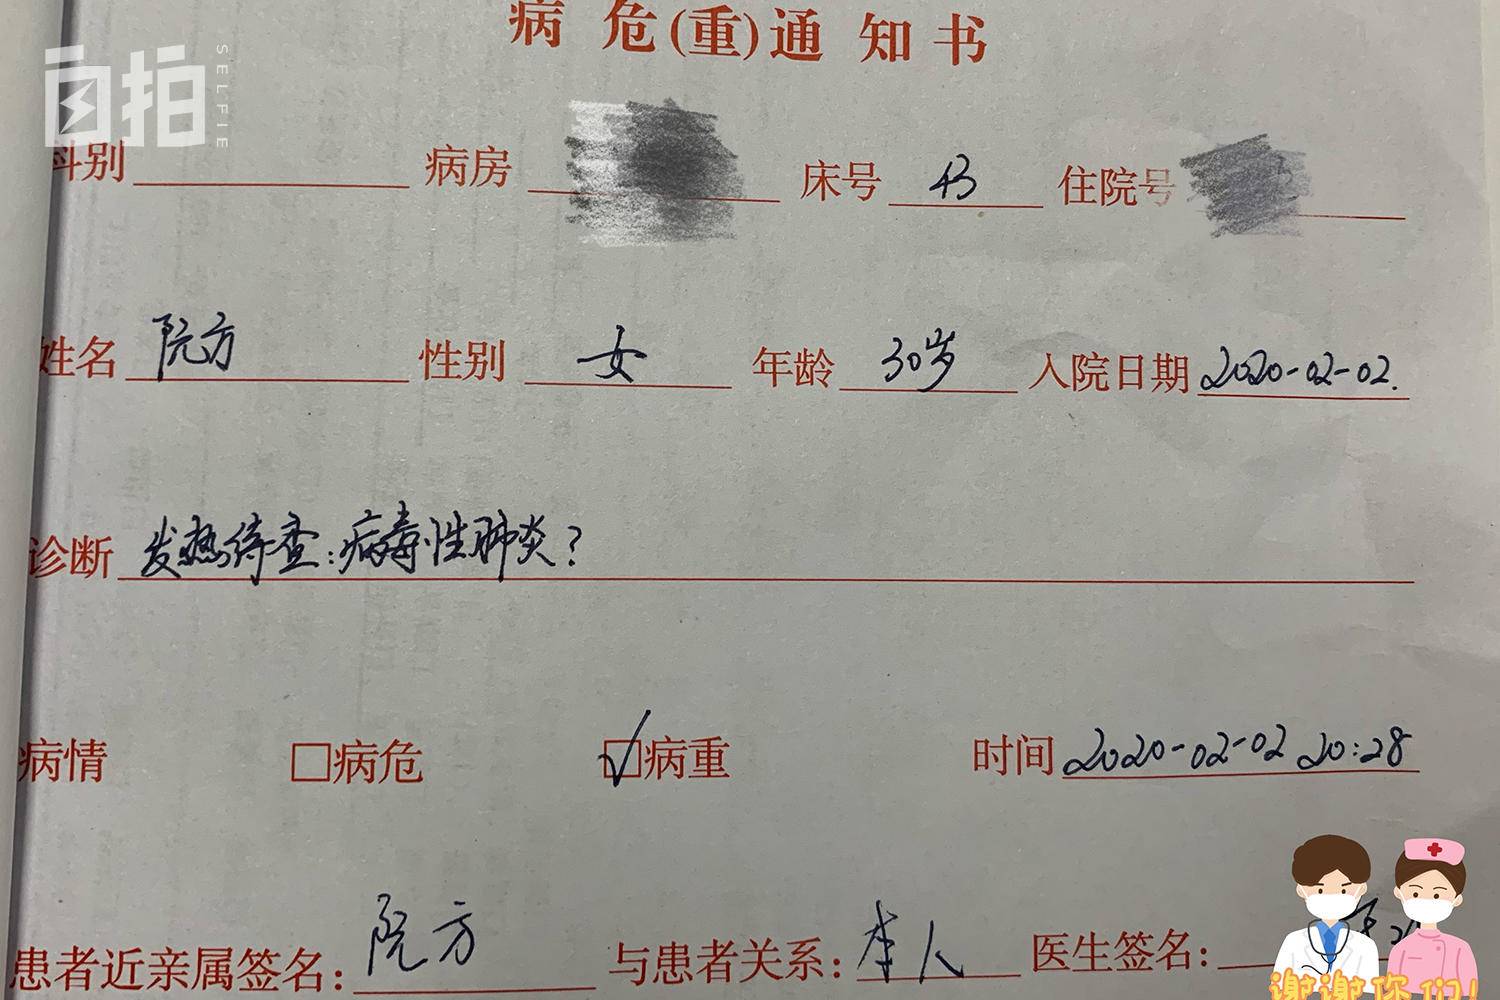 病危(重)通知书
自拍 SELFIE
科别 病房 床号 43 住院号
姓名 阮方 性别 女 年龄 30岁 入院日期 2020-02-02.
诊断 发热待查:病毒性肺炎?
病情 □病危 ☑病重 时间 2020-02-02 20:28
患者近亲属签名: 阮方 与患者关系: 本人 医生签名:
谢谢你们!